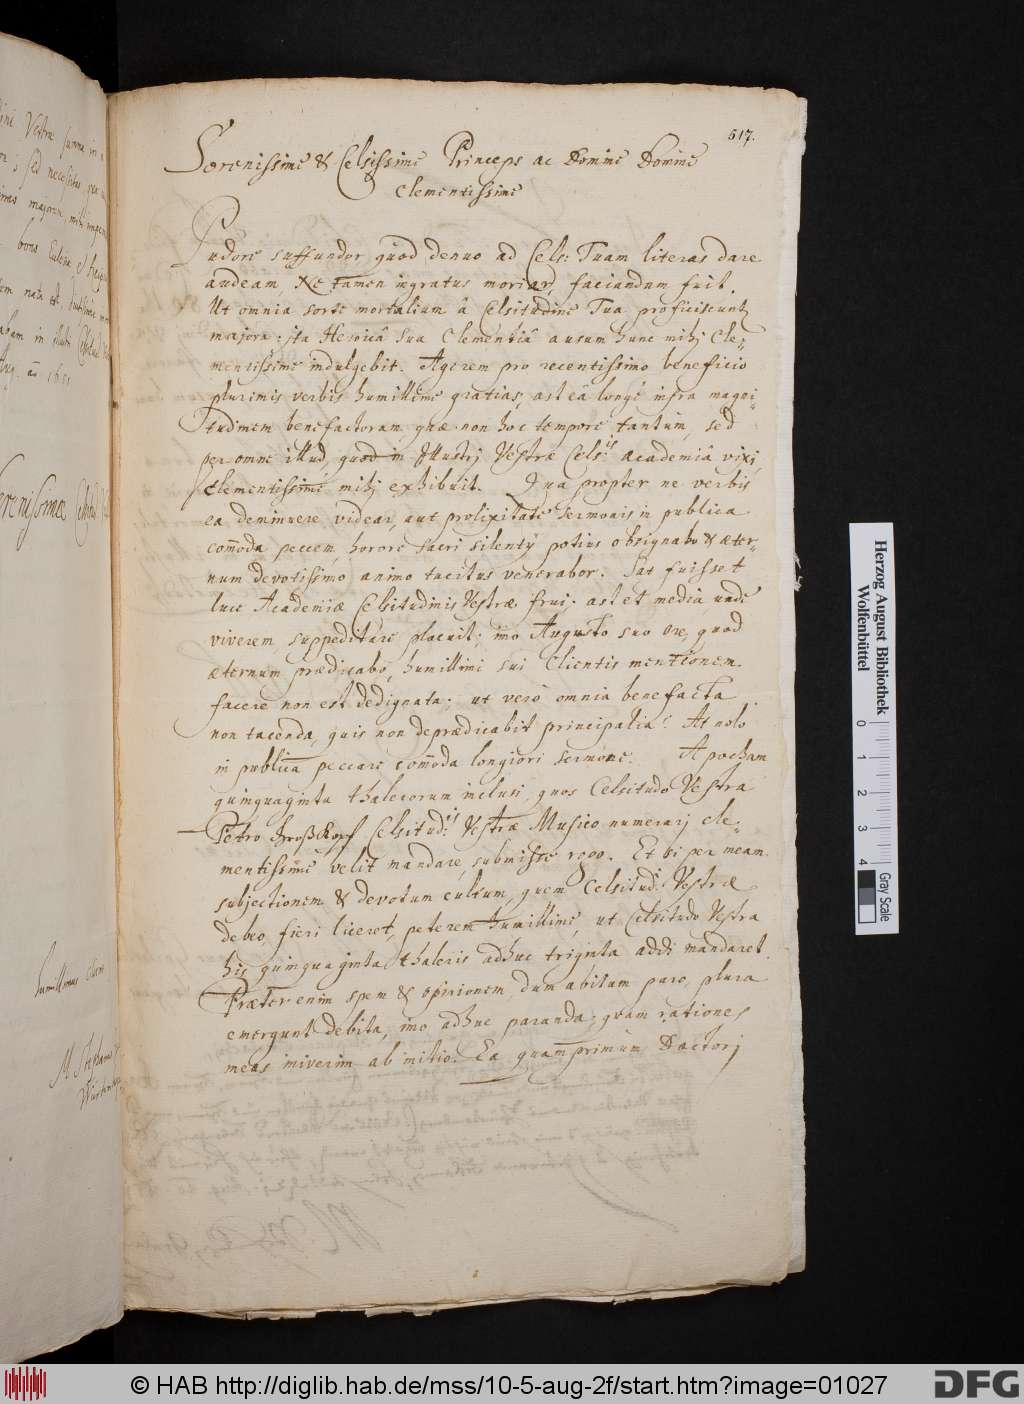 617.
Serenissime & Celsissime Princeps ac Domine Domine
Clementissime
Pudore suffundor quod denuo ad Cels: Tuam literas dare
audeam, Ne tamen ingratus moriar, faciendum fuit.
Ut omnia sorte mortalium â Celsitudine Tua proficiscunt
majora: ita Heroicâ sua Clementiâ ausum hunc mihj Cle-
mentissime indulgebit. Agerem pro recentissimo beneficio
plurimis verbis humillime gratias, ast eâ longè infra magni-
tudinem benefactoram, quæ non hoc tempore tantum, sed
per omne illud, quod in Illustrj Vestræ Cels:is academiâ vixj,
clementissime mihj exhibuit. Quapropter ne verbis
ea deminuere videar, aut prolixitate sermonis in publica
com̄oda peccem, horore sacri silentij potius obsignabo & æter-
num devotissimo animo tacitus venerabor. Sat fuisset
luce Academiæ Celsitudinis Vestræ frui: ast et media unde
viverem suppeditare placuit; imò Augusto suo ore, quod
æternum prædicabo, humillimi sui Clientis mentionem
facere non est dedignata: ut verò omnia benefacta
non tacenda, quis non deprædicabit principalia? At nolo
in publica peccare com̄oda longiori sermone. Apocham
quinquaginta thalerorum inclusi, quos Celsitudo Vestra
Petro Großkopf Celsitud:is Vestræ Musico numerarj cle-
mentissime velit mandare, submisse rogo. Et si per meam
subjectionem & devotum cultum, quem Celsitud:i Vestræ
debeo, fieri liceret, peterem humillime, ut Celsitudo Vestra
his quinquaginta thaleris adhuc triginta addi mandaret.
Præter enim spem & opinionem, dum abitum paro, plura
emergunt debita, imo adhuc paranda, quam rationes
meas iniverim ab initio. Ea quamprimum Doctorj
Herzog August Bibliothek
Wolfenbüttel
0 1 2 3 4
Gray Scale
© HAB http://diglib.hab.de/mss/10-5-aug-2f/start.htm?image=01027
DFG